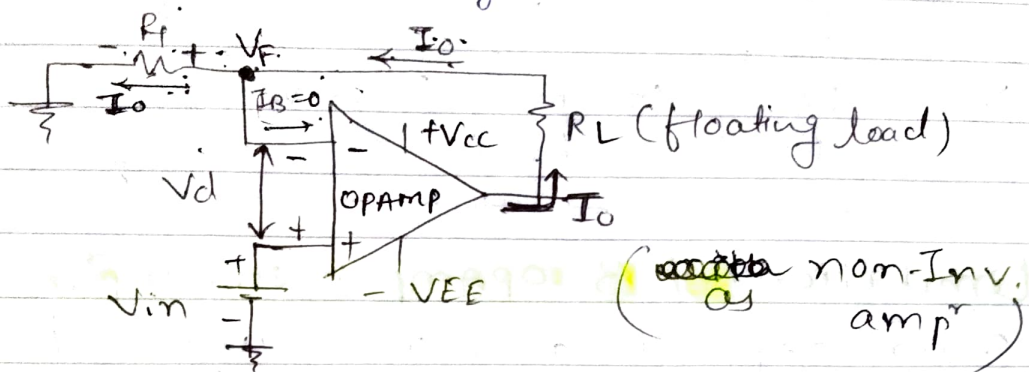 R1
- + VF.
Io
Io
IB=0
+Vcc
RL (floating load)
-
-
Vd
OPAMP
Io
+
+
+
Vin
-
- VEE
( as non-Inv.
ampr )